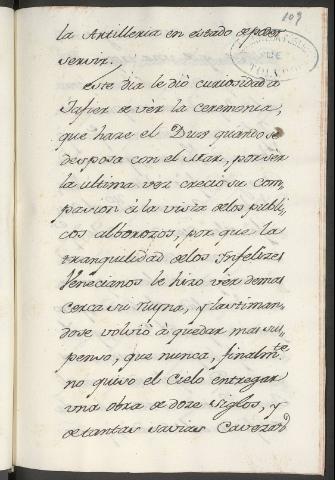 109
la Artilleria en estado de poder
servir.
este dia le dió curiosidad a
Jafier de vèr la ceremonia,
que haze el Dux quando se
desposa con el Mar, por ser
la ultima vez creció su com
pasion à la vista delos publi
cos alborozos, por que la
tranquilidad delos Infelizes
Venecianos le hizo ver demas
cerca su ruyna, y lastiman
dose volvió à quedar mas sus
penso, que nunca, finalm.te
no quiso el Cielo entregar
una obra de doze siglos, y
de tantas savias Cavezas